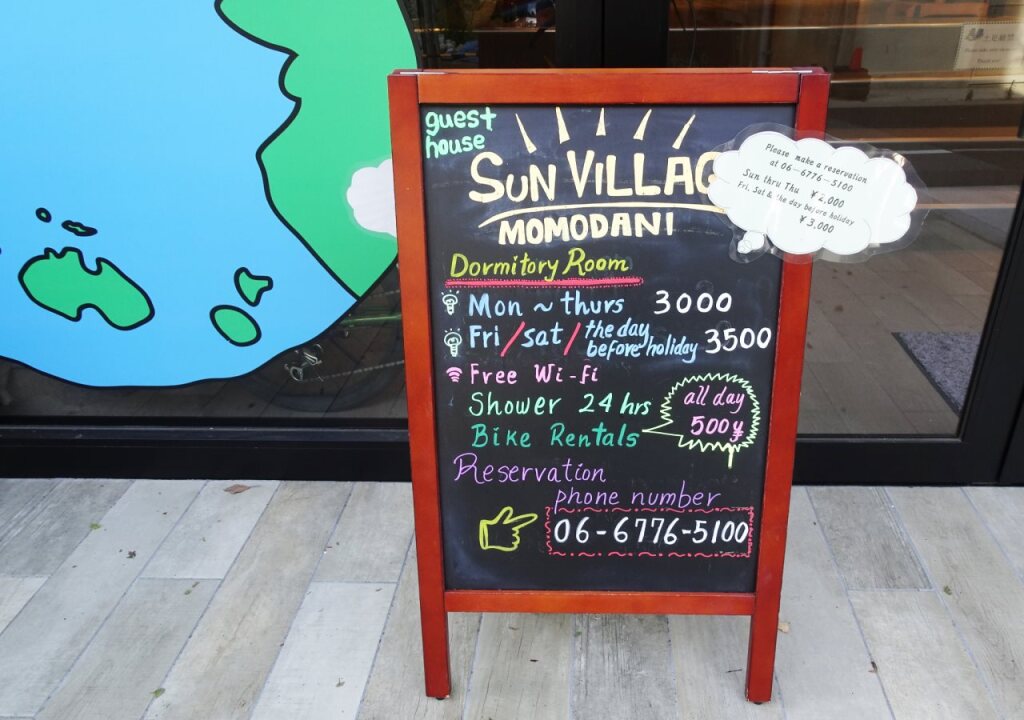 guest
house
SUN VILLAG
MOMODANI
Dormitory Room
Mon ~ thurs 3000
Fri/sat/the day
before holiday 3500
Free Wi-fi
Shower 24 hrs
Bike Rentals
all day
500¥
Reservation
phone number
06-6776-5100
Please make a reservation
at 06-6776-5100
Sun thru Thu ¥2,000
Fri, Sat & the day before holiday
¥3,000